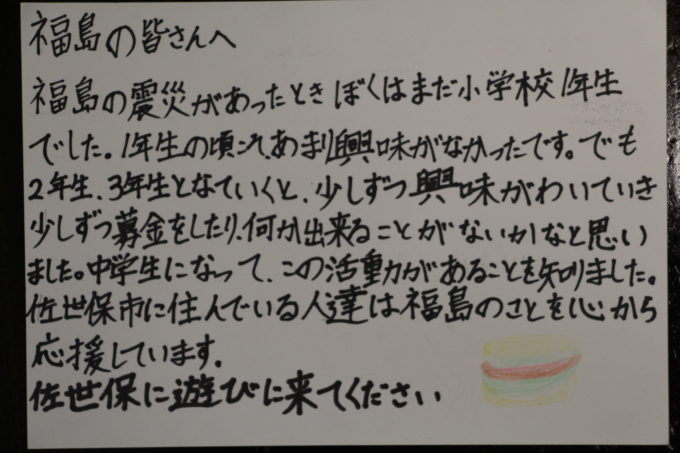 福島の皆さんへ
福島の震災があったときぼくはまだ小学校1年生
でした。1年生の頃は、あまり興味がなかったです。でも
2年生、3年生となていくと、少しずつ興味がわいていき
少しずつ募金をしたり、何か出来ることがないかなと思い
ました。中学生になって、この活動があることを知りました。
佐世保市に住んでいる人達は福島のことを心から
応援しています。
佐世保に遊びに来てください